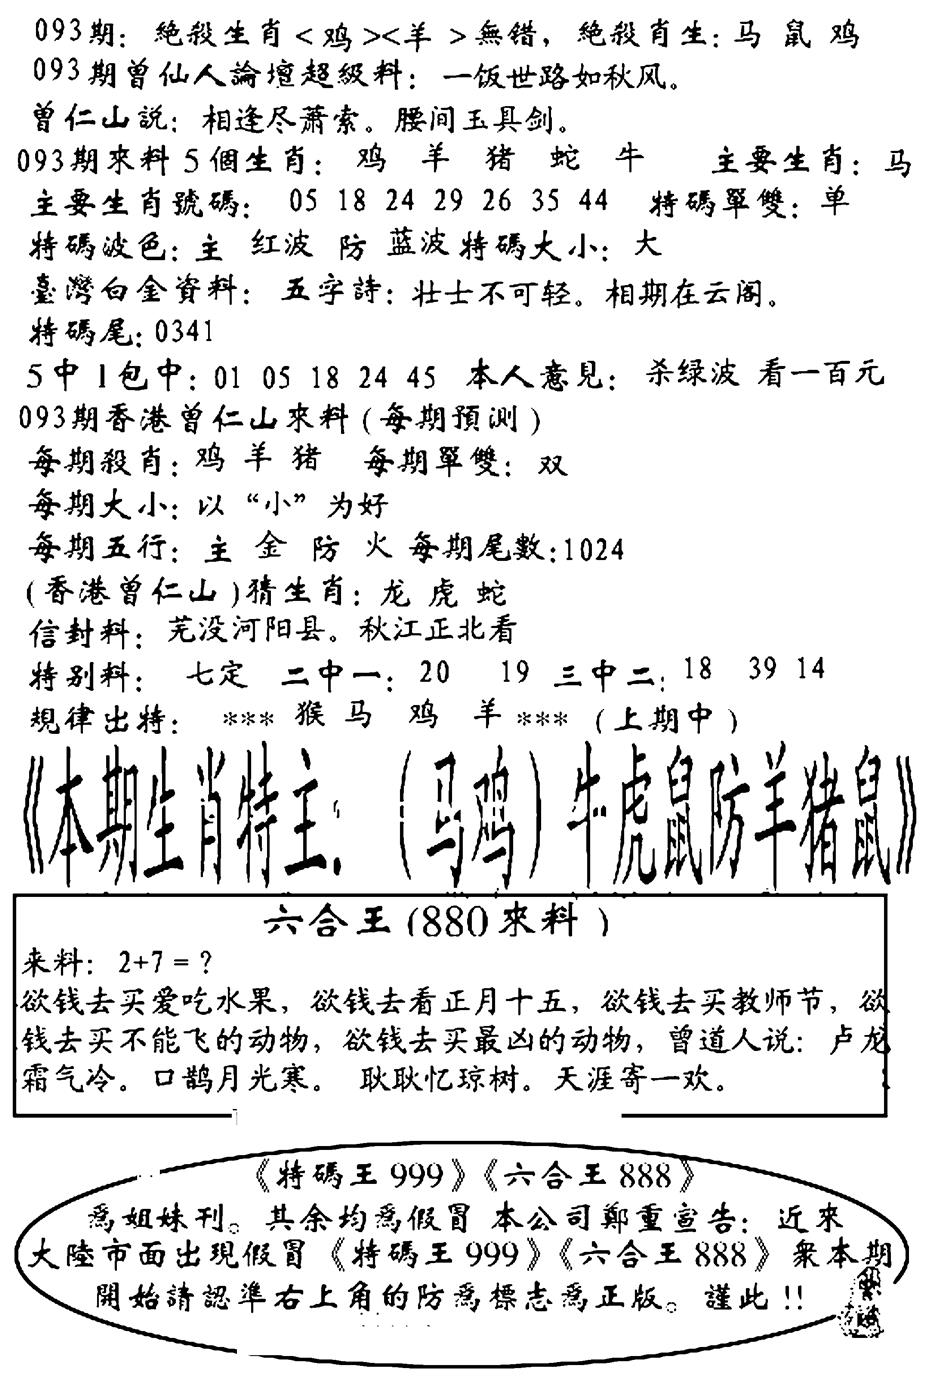 093期: 絶殺生肖<鸡><羊 >無错, 絶殺肖生: 马 鼠 鸡
093期曾仙人論壇超級料: 一饭世路如秋风。
曾仁山説: 相逢尽萧索。腰间玉具剑。
093期來料5個生肖: 鸡 羊 猪 蛇 牛 主要生肖: 马
主要生肖號碼: 05 18 24 29 26 35 44 特碼單雙: 单
特碼波色: 主 红波 防 蓝波 特碼大小: 大
臺灣白金資料: 五字詩: 壮士不可轻。相期在云阁。
特碼尾: 0341
5中1包中: 01 05 18 24 45 本人意見: 杀绿波 看一百元
093期香港曾仁山來料(每期預测)
每期殺肖: 鸡 羊 猪 每期單雙: 双
每期大小: 以“小”为好
每期五行: 主 金 防 火 每期尾數:1024
(香港曾仁山)猜生肖: 龙 虎 蛇
信封料: 芜没河阳县。秋江正北看
特别料: 七定 二中一: 20 19 三中二: 18 39 14
規律出特: *** 猴 马 鸡 羊 *** (上期中)
《本期生肖特主: (马鸡)牛虎鼠防羊猪鼠》
六合王(880來料)
来料: 2+7=?
欲钱去买爱吃水果, 欲钱去看正月十五, 欲钱去买教师节, 欲
钱去买不能飞的动物, 欲钱去买最凶的动物, 曾道人说: 卢龙
霜气冷。口鹊月光寒。 耿耿忆琼树。天涯寄一欢。
《特碼王999》《六合王888》
爲姐妹刊。其余均爲假冒 本公司鄭重宣告: 近來
大陸市面出現假冒《特碼王999》《六合王888》衆本期
開始請認準右上角的防爲標志爲正版。謹此!!